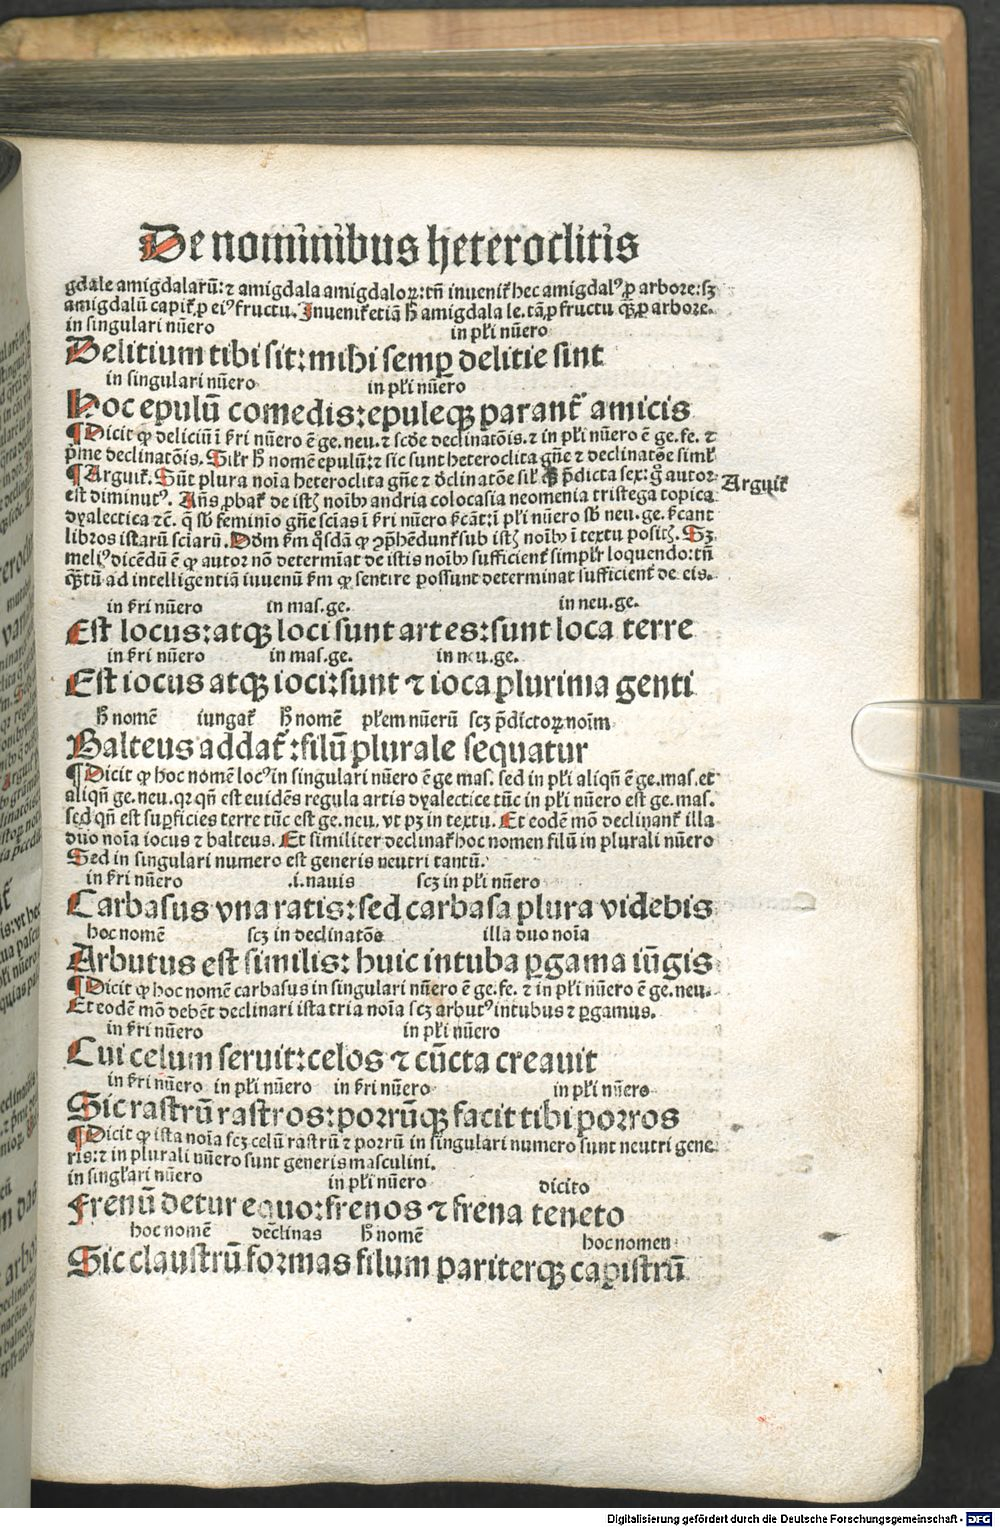 De nominibus heteroclitis
gdale amigdalarū:⁊ amigdala amigdaloꝝ:tn̄ inuenit᷑ hec amigdalꝰ ꝓ arbore:sꝫ
amigdalū capit᷑ ꝓ eiꝰ fructu. Inuenit᷑ etiā h̄ amigdala le. tā ꝓ fructu qꝫ̄ ꝓ arbore.
in singulari nūero in pl̄i nūero
Delitium tibi sit:mihi semꝑ delitie sint
in singulari nūero in pl̄i nūero
Hoc epulū comedis:epuleqꝫ parant᷑ amicis
¶Dicit ꝙ deliciū ī sīƚri nūero ē ge. neu. ⁊ scd̄e declinatōis. ⁊ in pl̄i nūero ē ge. fe. ⁊
p̄me declinatōis. Silr̄ h̄ nomē epulū:⁊ sic sunt heteroclita gn̄e ⁊ declinatōe simƚ
¶Arguit᷑. Sūt plura noīa heteroclita gn̄e ⁊ d̄clinatōe siƚ qꝫ̄ p̄dicta sex:g̊ autor
Arguit᷑
est diminutꝰ. An̄s ꝓbat᷑ de istꝭ noībꝰ andria colocasia neomenia tristega topica
dyalectica ⁊c̄. q̄ sb̄ feminīo gn̄e scīas ī sīƚri nūero sīcāt:ī pl̄i nūero sb̄ neu. ge. sīcant
libros istarū sciarū. Dōm sīm qͦsdā ꝙ ꝯp̄hēdunt᷑ sub istꝭ noībꝰ ī textu positꝭ. Sꝫ
meliꝰ dicēdū ē ꝙ autor nō determīat de istis noībꝰ sufficient᷑ simplr̄ loquendo:tn̄
qꝫ̄tū ad intelligentiā iuuenū sīm ꝙ sentire possunt determinat sufficient᷑ de eis.
in sīƚri nūero in mas. ge. in neu. ge.
Est locus:atqꝫ loci sunt artes:sunt loca terre
in sīƚri nūero in mas. ge. in neu. ge.
Est iocus atqꝫ ioci:sunt ⁊ ioca plurima genti
h̄ nomē iungat᷑ h̄ nomē pƚem nūerū scꝫ p̄dictoꝝ noīm
Balteus addat᷑:filū plurale sequatur
¶Dicit ꝙ hoc nomē locꝰ in singulari nūero ē ge mas. sed in pl̄i aliqn̄ ē ge. mas. et
aliqn̄ ge. neu. qꝛ qn̄ est euidēs regula artis dyalectice tūc in pl̄i nūero est ge. mas.
sed qn̄ est suꝑficies terre tūc est ge. neu. vt pꝫ in textu. Et eodē mō declinant᷑ illa
duo noīa iocus ⁊ balteus. Et similiter declinat᷑ hoc nomen filū in plurali nūero
Sed in singulari numero est generis neutri tantū.
in sīƚri nūero .i. nauis scꝫ in pl̄i nūero
Carbasus vna ratis:sed carbasa plura videbis
hoc nomē scꝫ in declinatōe illa duo noīa
Arbutus est similis: huic intuba ꝑgama iūgis
¶Dicit ꝙ hoc nomē carbasus in singulari nūero ē ge. fe. ⁊ in pl̄i nūero ē ge. neu.
Et eodē mō debēt declinari ista tria noīa scꝫ arbutꝰ intubus ⁊ ꝑgamus.
in sīƚri nūero in pl̄i nūero
Cui celum seruit:celos ⁊ cūcta creauit
in sīƚri nūero in pl̄i nūero in sīƚri nūero in pl̄i nūero
Sic rastrū rastros:porrūqꝫ facit tibi porros
¶Dicit ꝙ ista noīa scꝫ celū rastrū ⁊ porrū in singulari numero sunt neutri gene
ris:⁊ in plurali nūero sunt generis masculini.
in singƚari nūero in pl̄i nūero dicito
Frenū detur equo:frenos ⁊ frena teneto
hoc nomē declīnas h̄ nomē hoc nomen
Sic claustrū formas filum pariterqꝫ capistrū
Digitalisierung gefördert durch die Deutsche Forschungsgemeinschaft - DFG